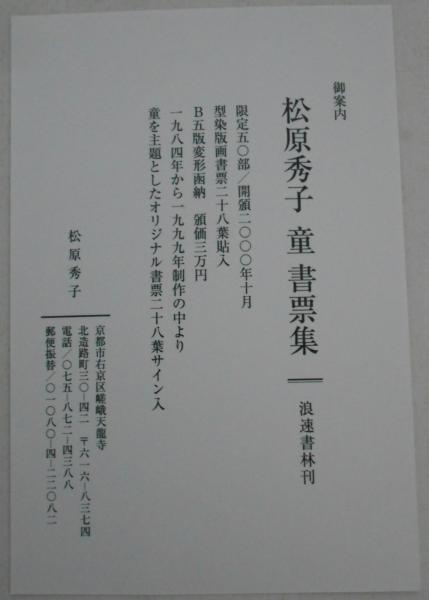 御案内
松原秀子 童 書票集 ── 浪速書林刊
限定五〇部/開頒二〇〇〇年十月
型染版画書票二十八葉貼入
B五版変形函納 頒価三万円
一九八四年から一九九九年制作の中より
童を主題としたオリジナル書票二十八葉サイン入
松原秀子
京都市右京区嵯峨天龍寺
北造路町三〇―四二 〒六一六―八三七四
電話/〇七五―八七二―四三八八
郵便振替/〇一〇八〇―四―二二〇八二